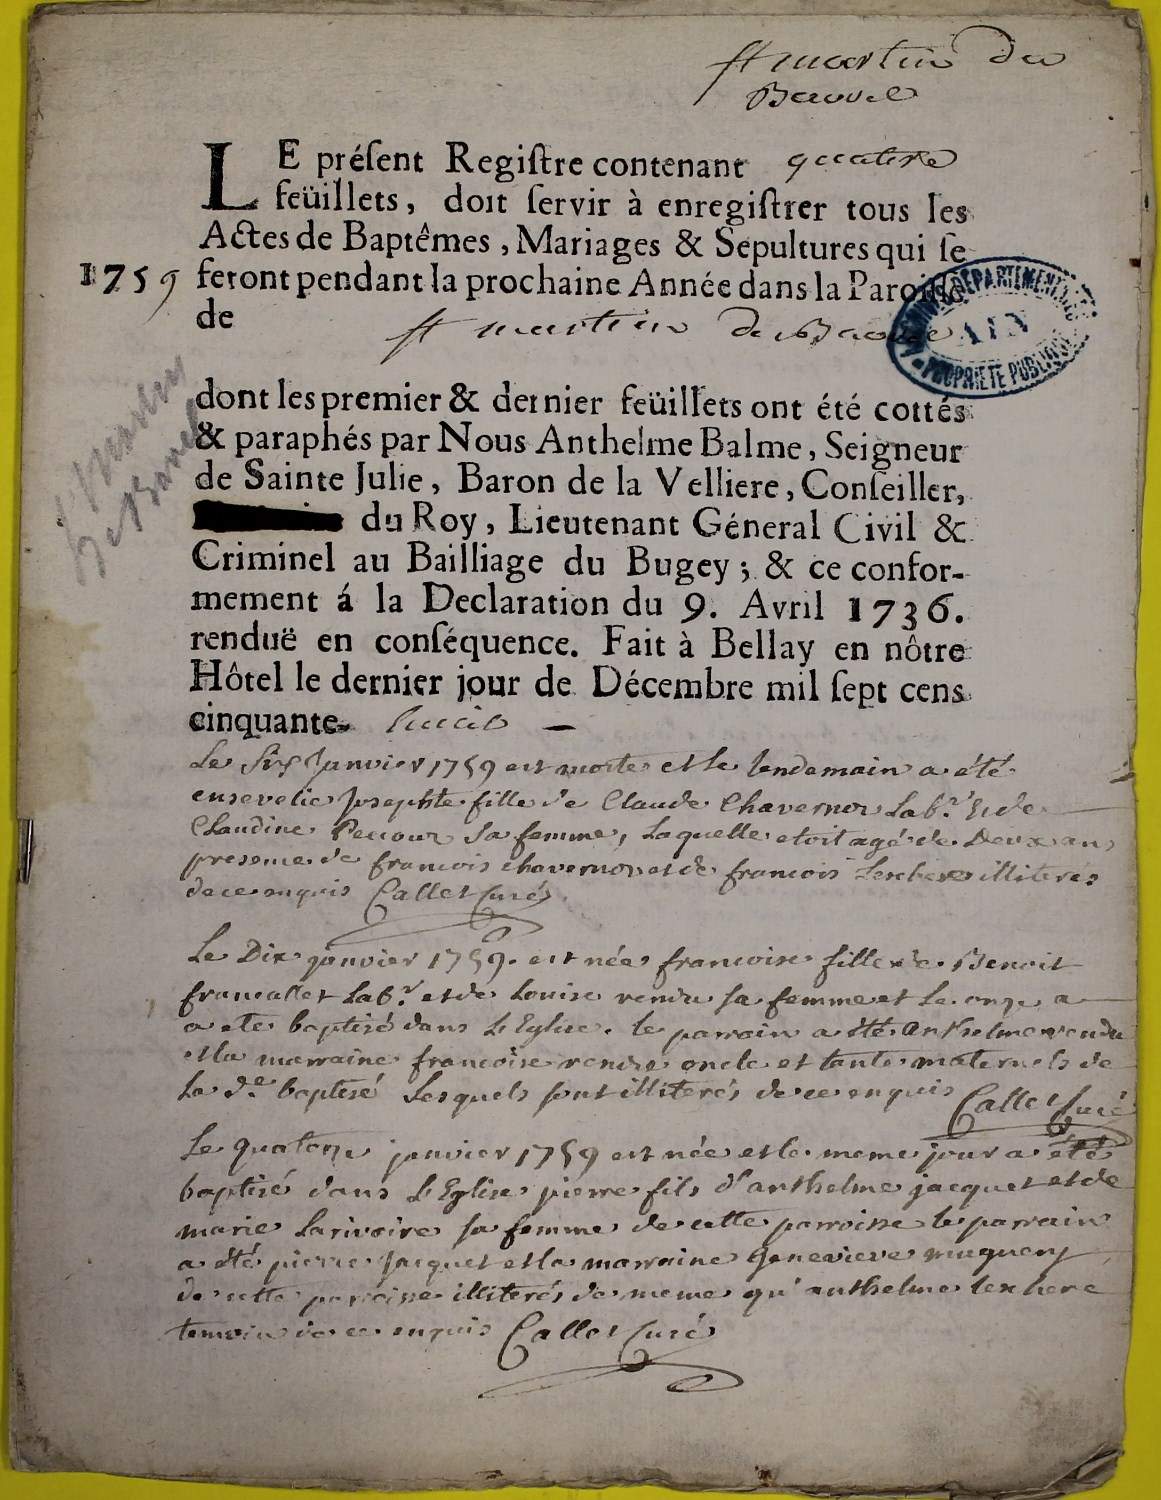 St martin de
Bavouse
LE préſent Regiſtre contenant quatre
feüillets, doit ſervir à enregiſtrer tous les
Actes de Baptêmes, Mariages & Sepultures qui ſe
1759 feront pendant la prochaine Année dans la Paroiſſe
de St martin de
ARCHIVES DÉPARTEMENTALES
AIN
PROPRIÉTÉ PUBLIQUE
dont les premier & dernier feüillets ont été cottés
& paraphés par Nous Anthelme Balme, Seigneur
de Sainte Julie, Baron de la Velliere, Conſeiller,
du Roy, Lieutenant Géneral Civil &
Criminel au Bailliage du Bugey; & ce confor-
mement á la Declaration du 9. Avril 1736.
renduë en conſéquence. Fait à Bellay en nôtre
Hôtel le dernier jour de Décembre mil ſept cens
cinquante- huit —
St martin
de
Le six Janvier 1759 est morte et le lendemain a été
ensevelie Josephte fille de Claude Chavernoz Lab.r et de
Claudine Pecour sa femme, Laquelle etoit agé de Deux ans
presence de francois chavernoz et de francois Lexchere illiterés
de ce enquis Callet Curé
Le Dix janvier 1759. est née francoise fille de Benoit
francallet Lab.r et de Louise vendu sa femme et le onze a
a ete baptisé dans L'Eglise. le parrain a été anthelme vendu
et la marraine francoise vendu oncle et tante maternels de
La d.e baptisé Lesquels sont illiterés de ce enquis Callet Curé
Le quatorze janvier 1759 est née et le meme jour a été
baptisé dans L'Eglise pierre fils d'anthelme jacquet et de
marie Larivoire sa femme de cette parroisse le parrain
a été pierre jacquet et la marraine Genevieve
de cette parroisse illiterés de meme qu'anthelme lexchere
temoin de ce enquis Callet Curé